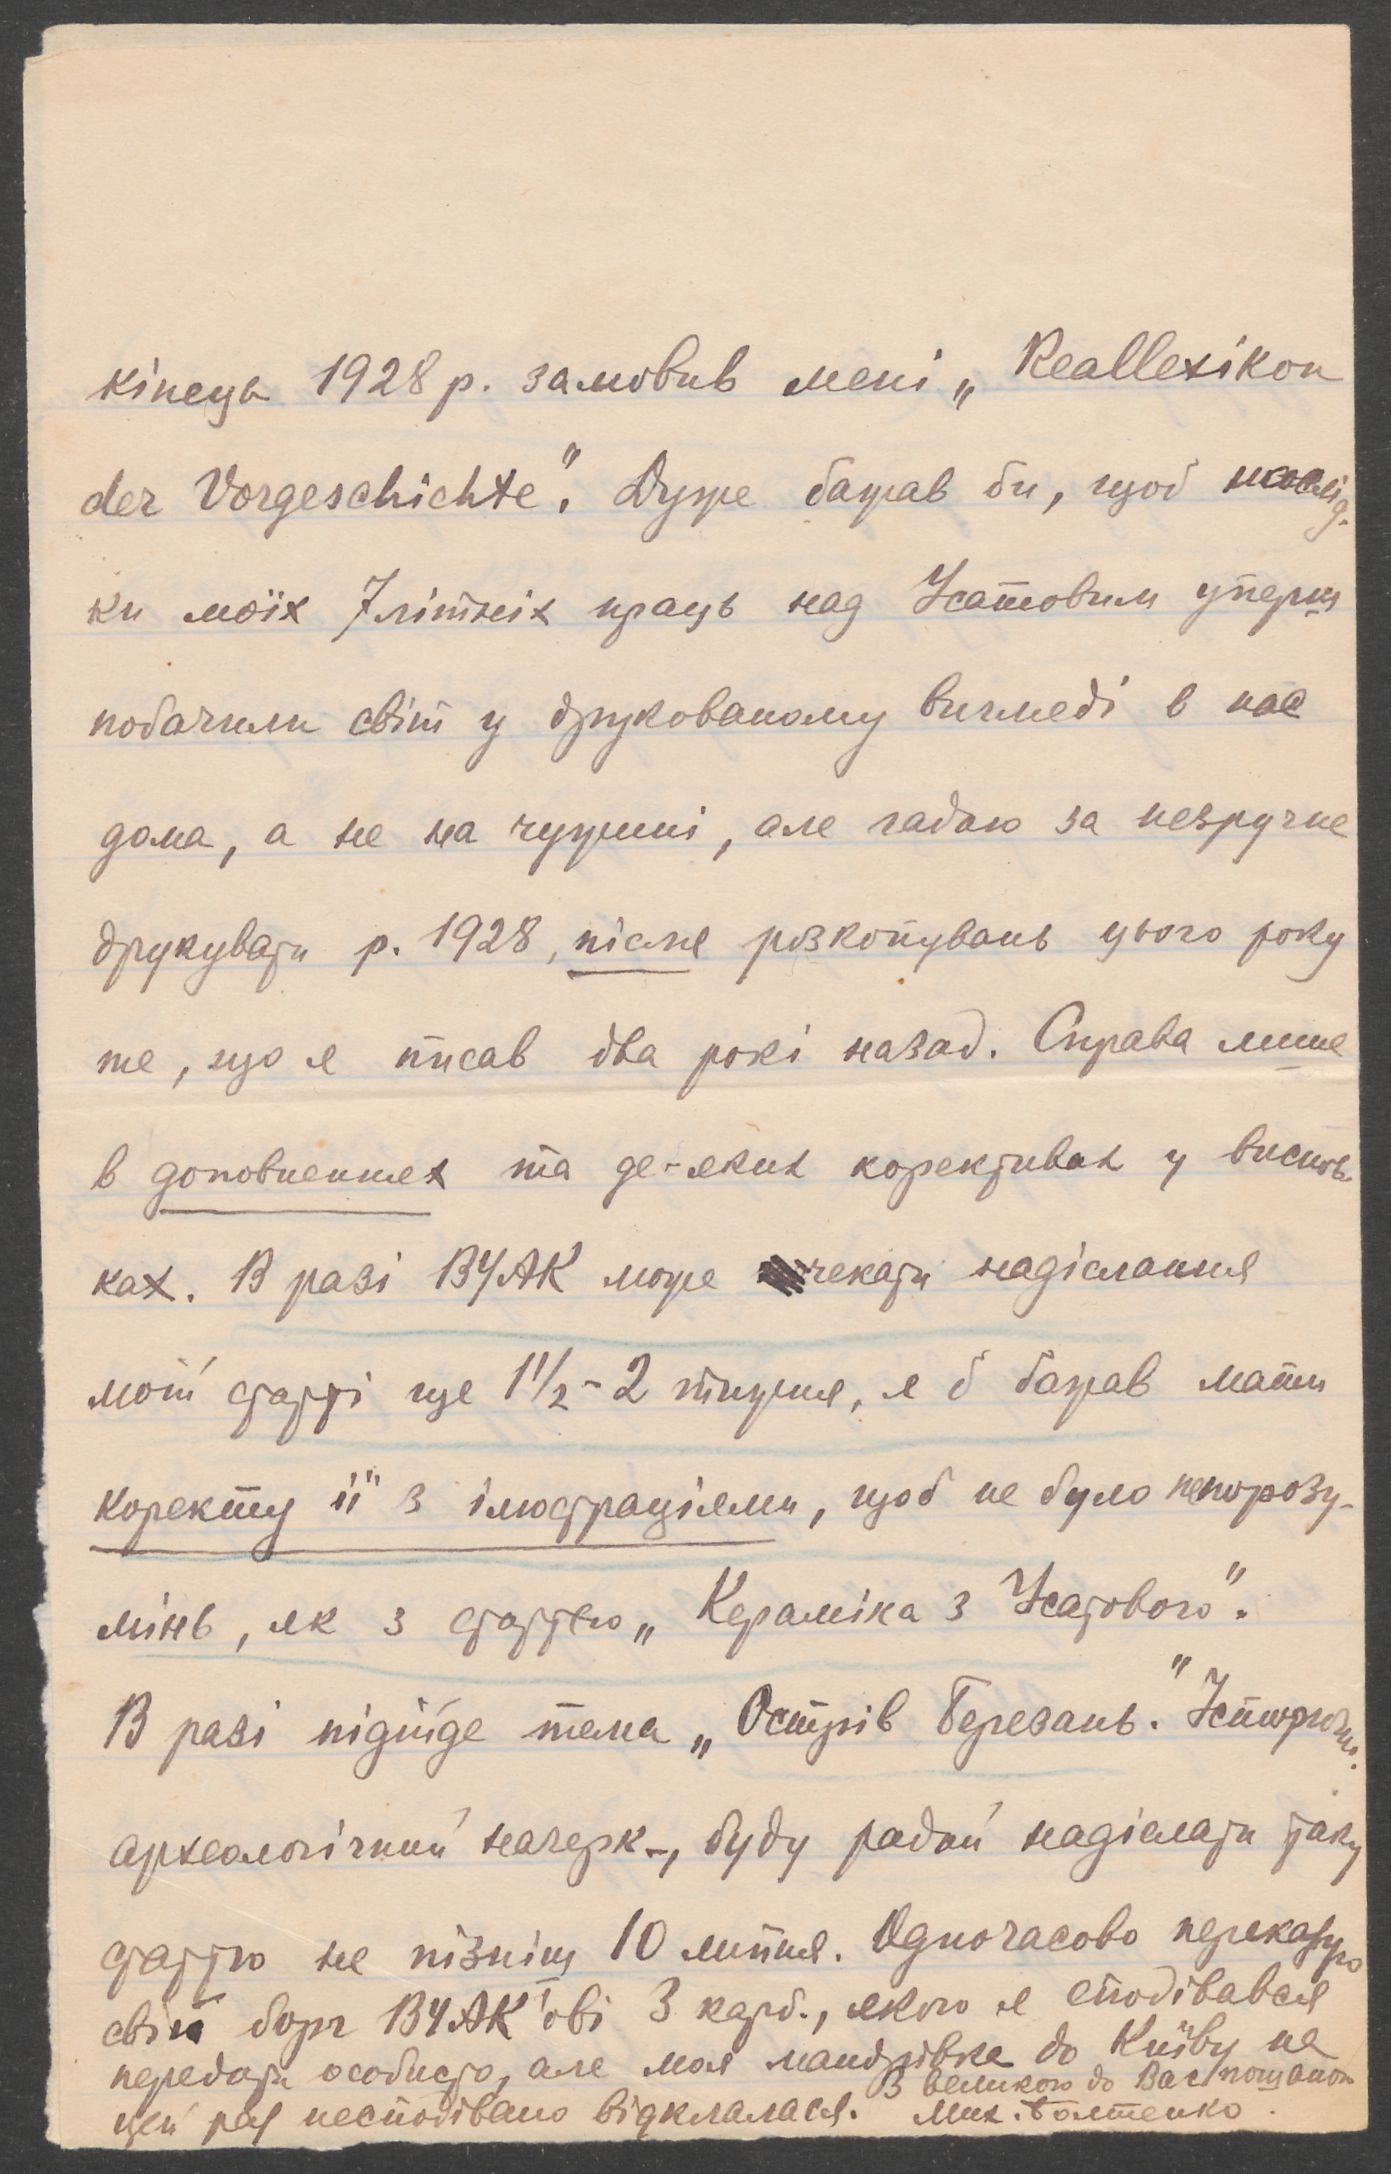 кінець 1928 р. замовив мені „Reallexikon
der Vorgeschichte". Дуже бажав би, щоб наслід-
ки моїх 7літніх праць над Усатовим уперш
побачили світ у друкованому вигляді в нас
дома, а не на чужині, але гадаю за незручне
друкувати р. 1928, після розкопувань цього року
те, що я писав два рокі назад. Справа лише
в доповненнях та де-яких корективах у виснов-
ках. В разі ВУАК може чекати надіслання
моєї статті ще 1 1/2 - 2 тижня, я б бажав мати
коректу її з ілюстраціями, щоб не було непорозу-
мінь, як з статтею „Кераміка з Усатового".
В разі підійде тема „Острів Березань." Історично-
археологічний начерк -, буду радий надіслати таку
статтю не пізніш 10 липня. Одночасово переказую
свій борг ВУАК'ові 3 карб., якого я сподівався
передати особисто, але моя мандрівка до Київу на
цей раз несподівано відклалася. З великою до Вас пошаною
Мих. Болтенко.